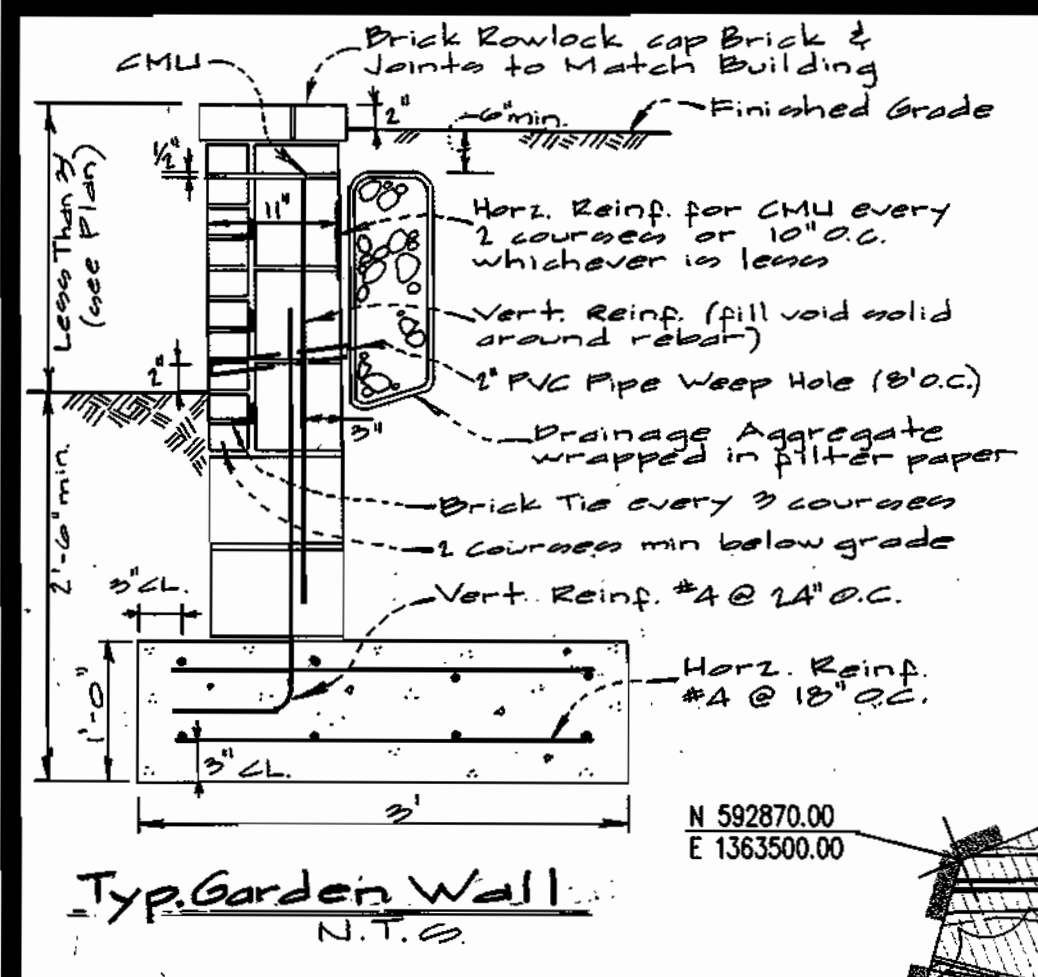 Brick Rowlock cap Brick &
Joints to Match Building
CMU
2"
6" min.
Finished Grade
1/2"
Less Than 3'
(see Plan)
11"
Horz. Reinf. for CMU every
2 courses or 10" O.C.
whichever is less
Vert. Reinf. (fill void solid
around rebar)
2"
2" PVC Pipe Weep Hole (8' O.C.)
3"
Drainage Aggregate
wrapped in filter paper
2'-6" min.
Brick Tie every 3 courses
2 courses min below grade
3" CL.
Vert. Reinf. #4 @ 24" O.C.
1'-0"
Horz. Reinf.
#4 @ 18" O.C.
3" CL.
3'
N 592870.00
E 1363500.00
Typ. Garden Wall
N.T.S.